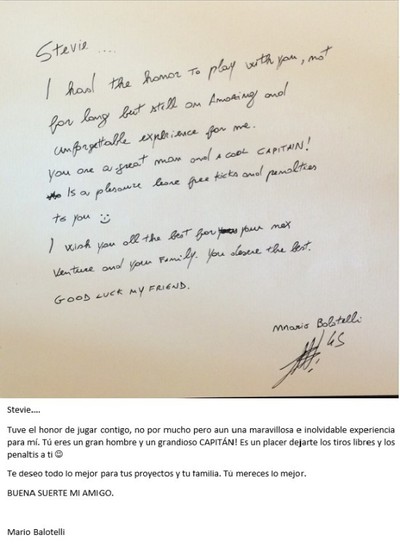 Stevie....
I had the honor to play with you, not
for long but still an Amazing and
unforgettable experience for me.
You are a great man and a cool CAPITAIN!
Is a pleasure leave free kicks and penalties
to you
I wish you all the best for your nex
venture and your Family. You deserve the best.
GOOD LUCK MY FRIEND.
Mario Balotelli
45
Stevie....
Tuve el honor de jugar contigo, no por mucho pero aun una maravillosa e inolvidable experiencia
para mí. Tú eres un gran hombre y un grandioso CAPITÁN! Es un placer dejarte los tiros libres y los
penaltis a ti ☺
Te deseo todo lo mejor para tus proyectos y tu familia. Tú mereces lo mejor.
BUENA SUERTE MI AMIGO.
Mario Balotelli